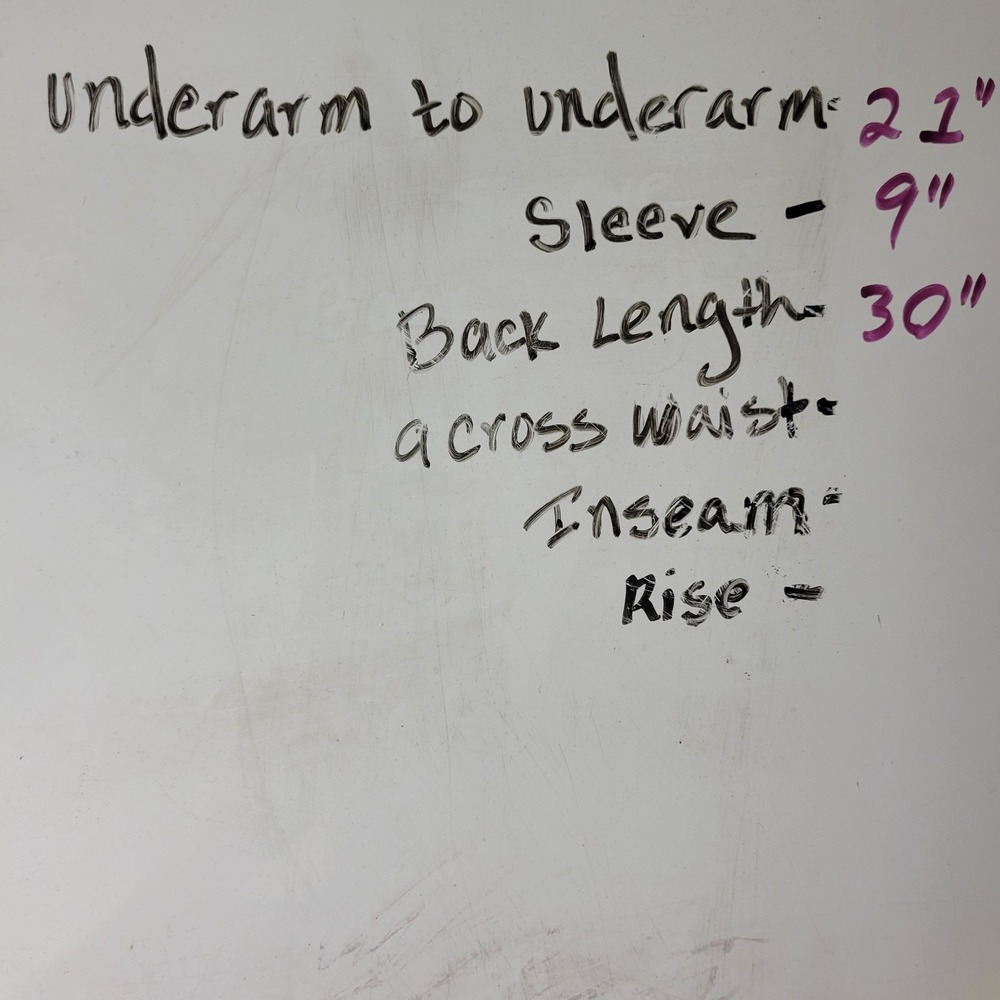 underarm to underarm- 21"
Sleeve - 9"
Back Length- 30"
across waist-
Inseam-
Rise -